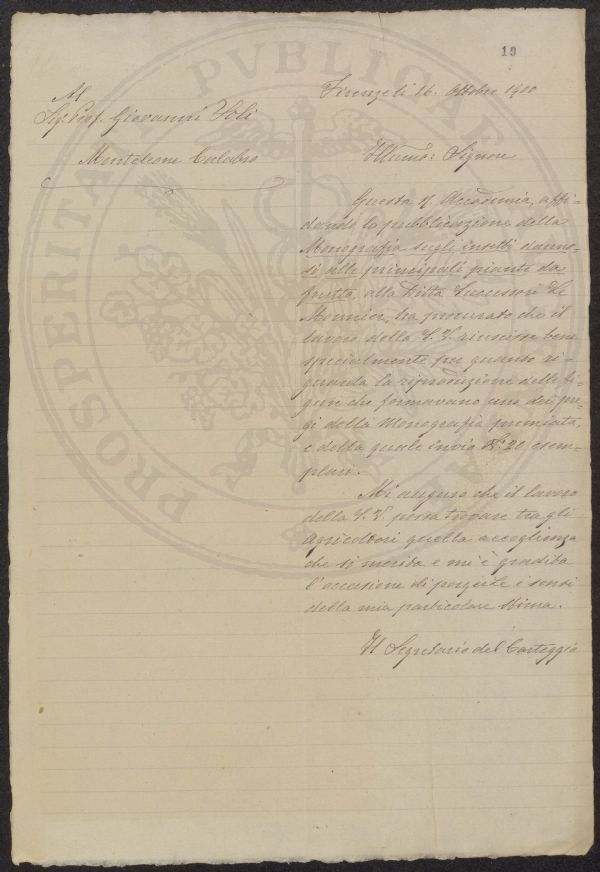 19
Firenze li 16. Ottobre 1900
Al
Sig. Prof. Giovanni
Monteleone Calabro
Illmo: Signore
Questa R. Accademia, affi-
dando la pubblicazione della
Monografia sugli insetti danno-
si alle principali piante da
frutta, alla Ditta Successori Le
Monnier, ha procurato che il
lavoro della S. V. riuscisse bene
specialmente per quanto ri-
guarda la riproduzione delle fi-
gure che formavano uno dei pre-
gi della Monografia premiata,
e della quale invio N.º 20 esem-
plari.
Mi auguro che il lavoro
della S. V. possa trovare tra gli
Agricoltori quella accoglienza
che si merita e mi è gradita
l'occasione di porgerLe i sensi
della mia particolare stima.
Il Segretario del Carteggio
PROSPERITATI PVBLICAE